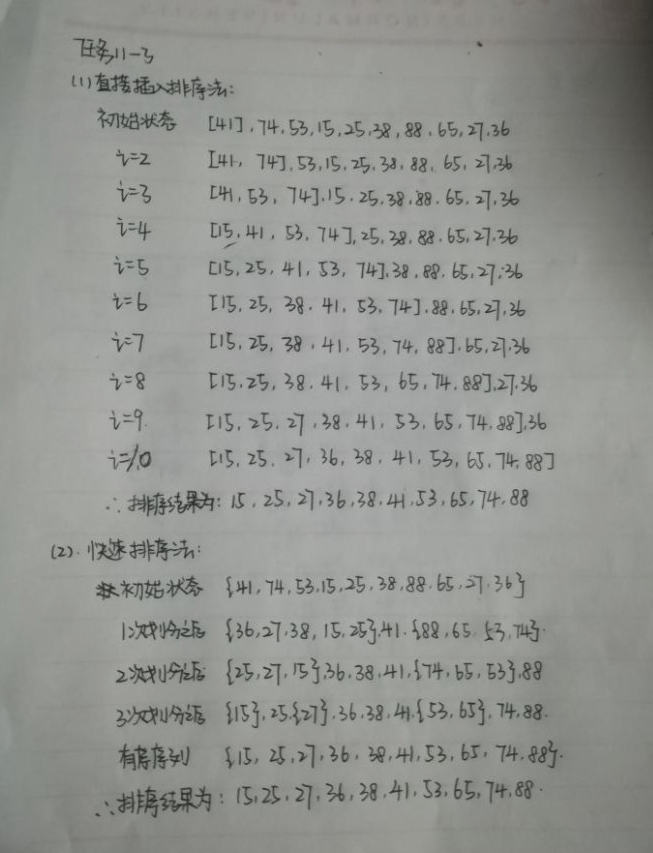 任务11-3
(1)直接插入排序法:
初始状态 [41],74,53,15,25,38,88,65,27,36
i=2 [41,74],53,15,25,38,88,65,27,36
i=3 [41,53,74],15,25,38,88,65,27,36
i=4 [15,41,53,74],25,38,88,65,27,36
i=5 [15,25,41,53,74],38,88,65,27,36
i=6 [15,25,38,41,53,74],88,65,27,36
i=7 [15,25,38,41,53,74,88],65,27,36
i=8 [15,25,38,41,53,65,74,88],27,36
i=9 [15,25,27,38,41,53,65,74,88],36
i=10 [15,25,27,36,38,41,53,65,74,88]
∴排序结果为: 15,25,27,36,38,41,53,65,74,88
(2).快速排序法:
初始状态 {41,74,53,15,25,38,88,65,27,36}
1次划分之后 {36,27,38,15,25},41,{88,65,53,74}.
2次划分之后 {25,27,15},36,38,41,{74,65,53},88
3次划分之后 {15},25,{27},36,38,41,{53,65},74,88.
有序序列 {15,25,27,36,38,41,53,65,74,88}.
∴排序结果为: 15,25,27,36,38,41,53,65,74,88.